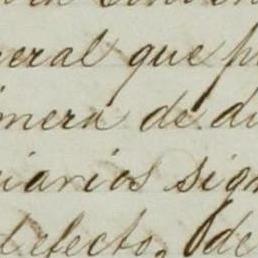 eral que p
imera de di
iarios sig
defecto, de